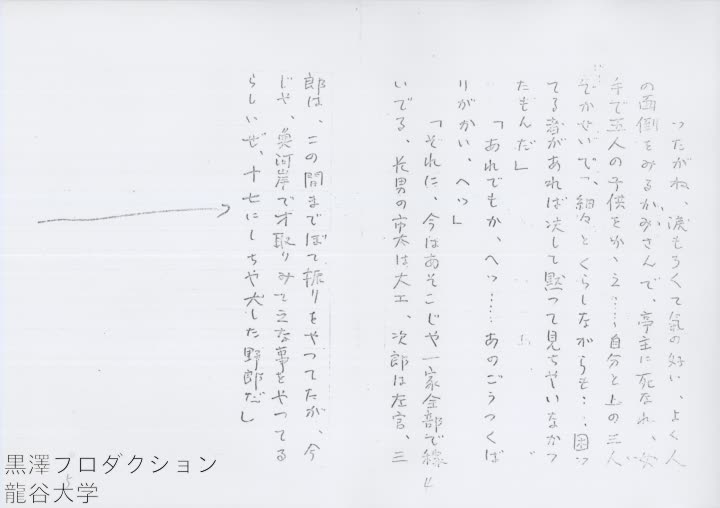 つたがね、涙もろくて気の好い、よく人
の面倒をみるかみさんで、亭主に死なれ、女
手で五人の子供をかゝえ……自分と上の三人
でかせいで、細々とくらしながらも…、困つ
てる者があれば決して黙つて見ちやいなかつ
たもんだ」
「あれでもか、へッ……あのごうつくば
りがかい、へッ」
「それに、今はあそこじや一家全部で稼
いでる、長男の市太は大工、次郎は左官、三
郎は、この間までぼて振りをやつてたが、今
じや、魚河岸で才取りみて立な事をやつてる
らしいぜ、十七にしちや大した野郎だ」
黒澤プロダクション
龍谷大学